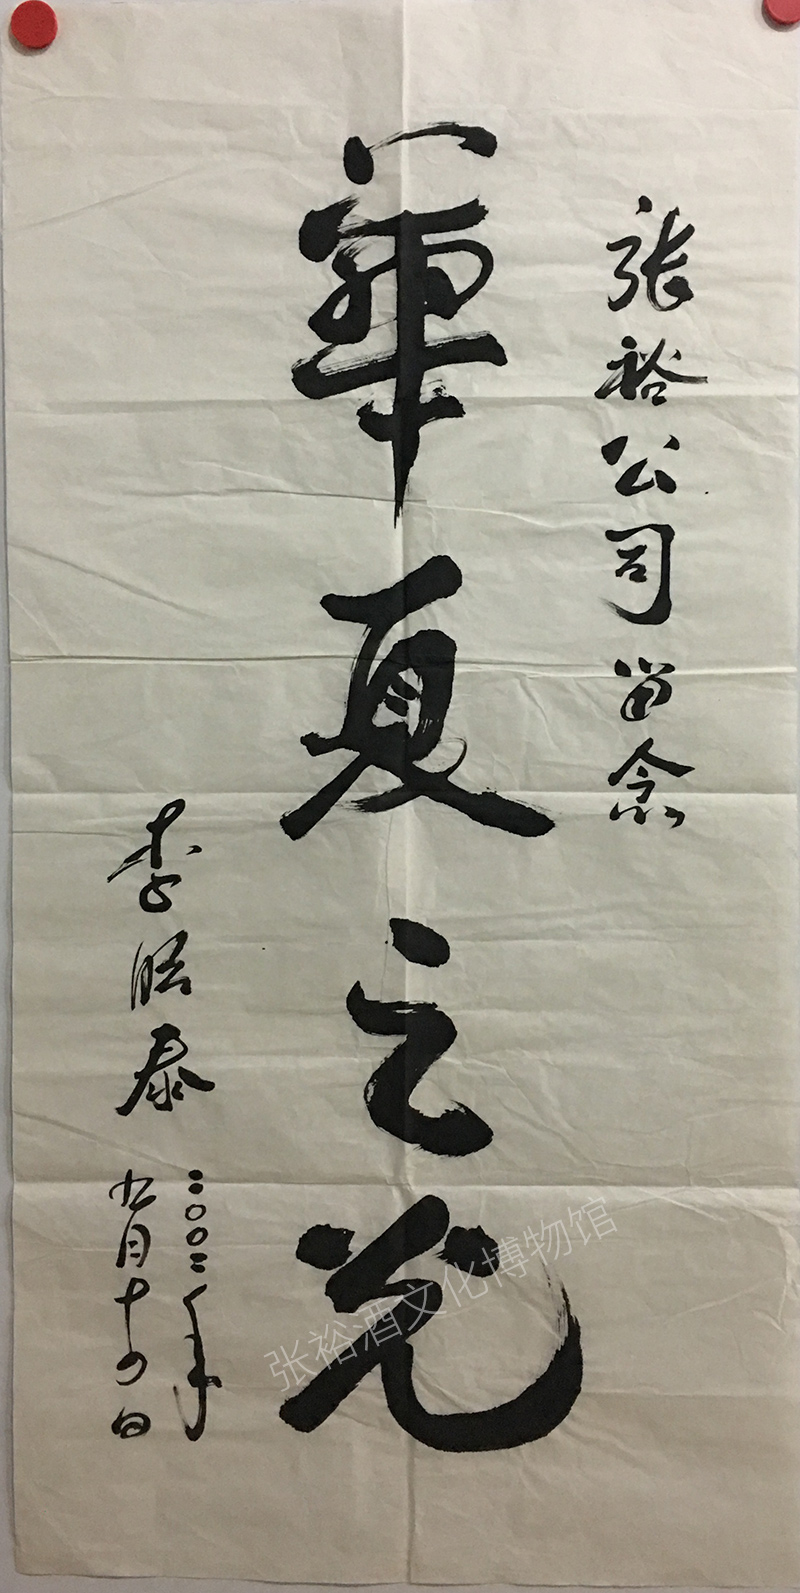 张裕公司留念
華夏之光
李昭泰
二〇〇二年
九月十四日
张裕酒文化博物馆